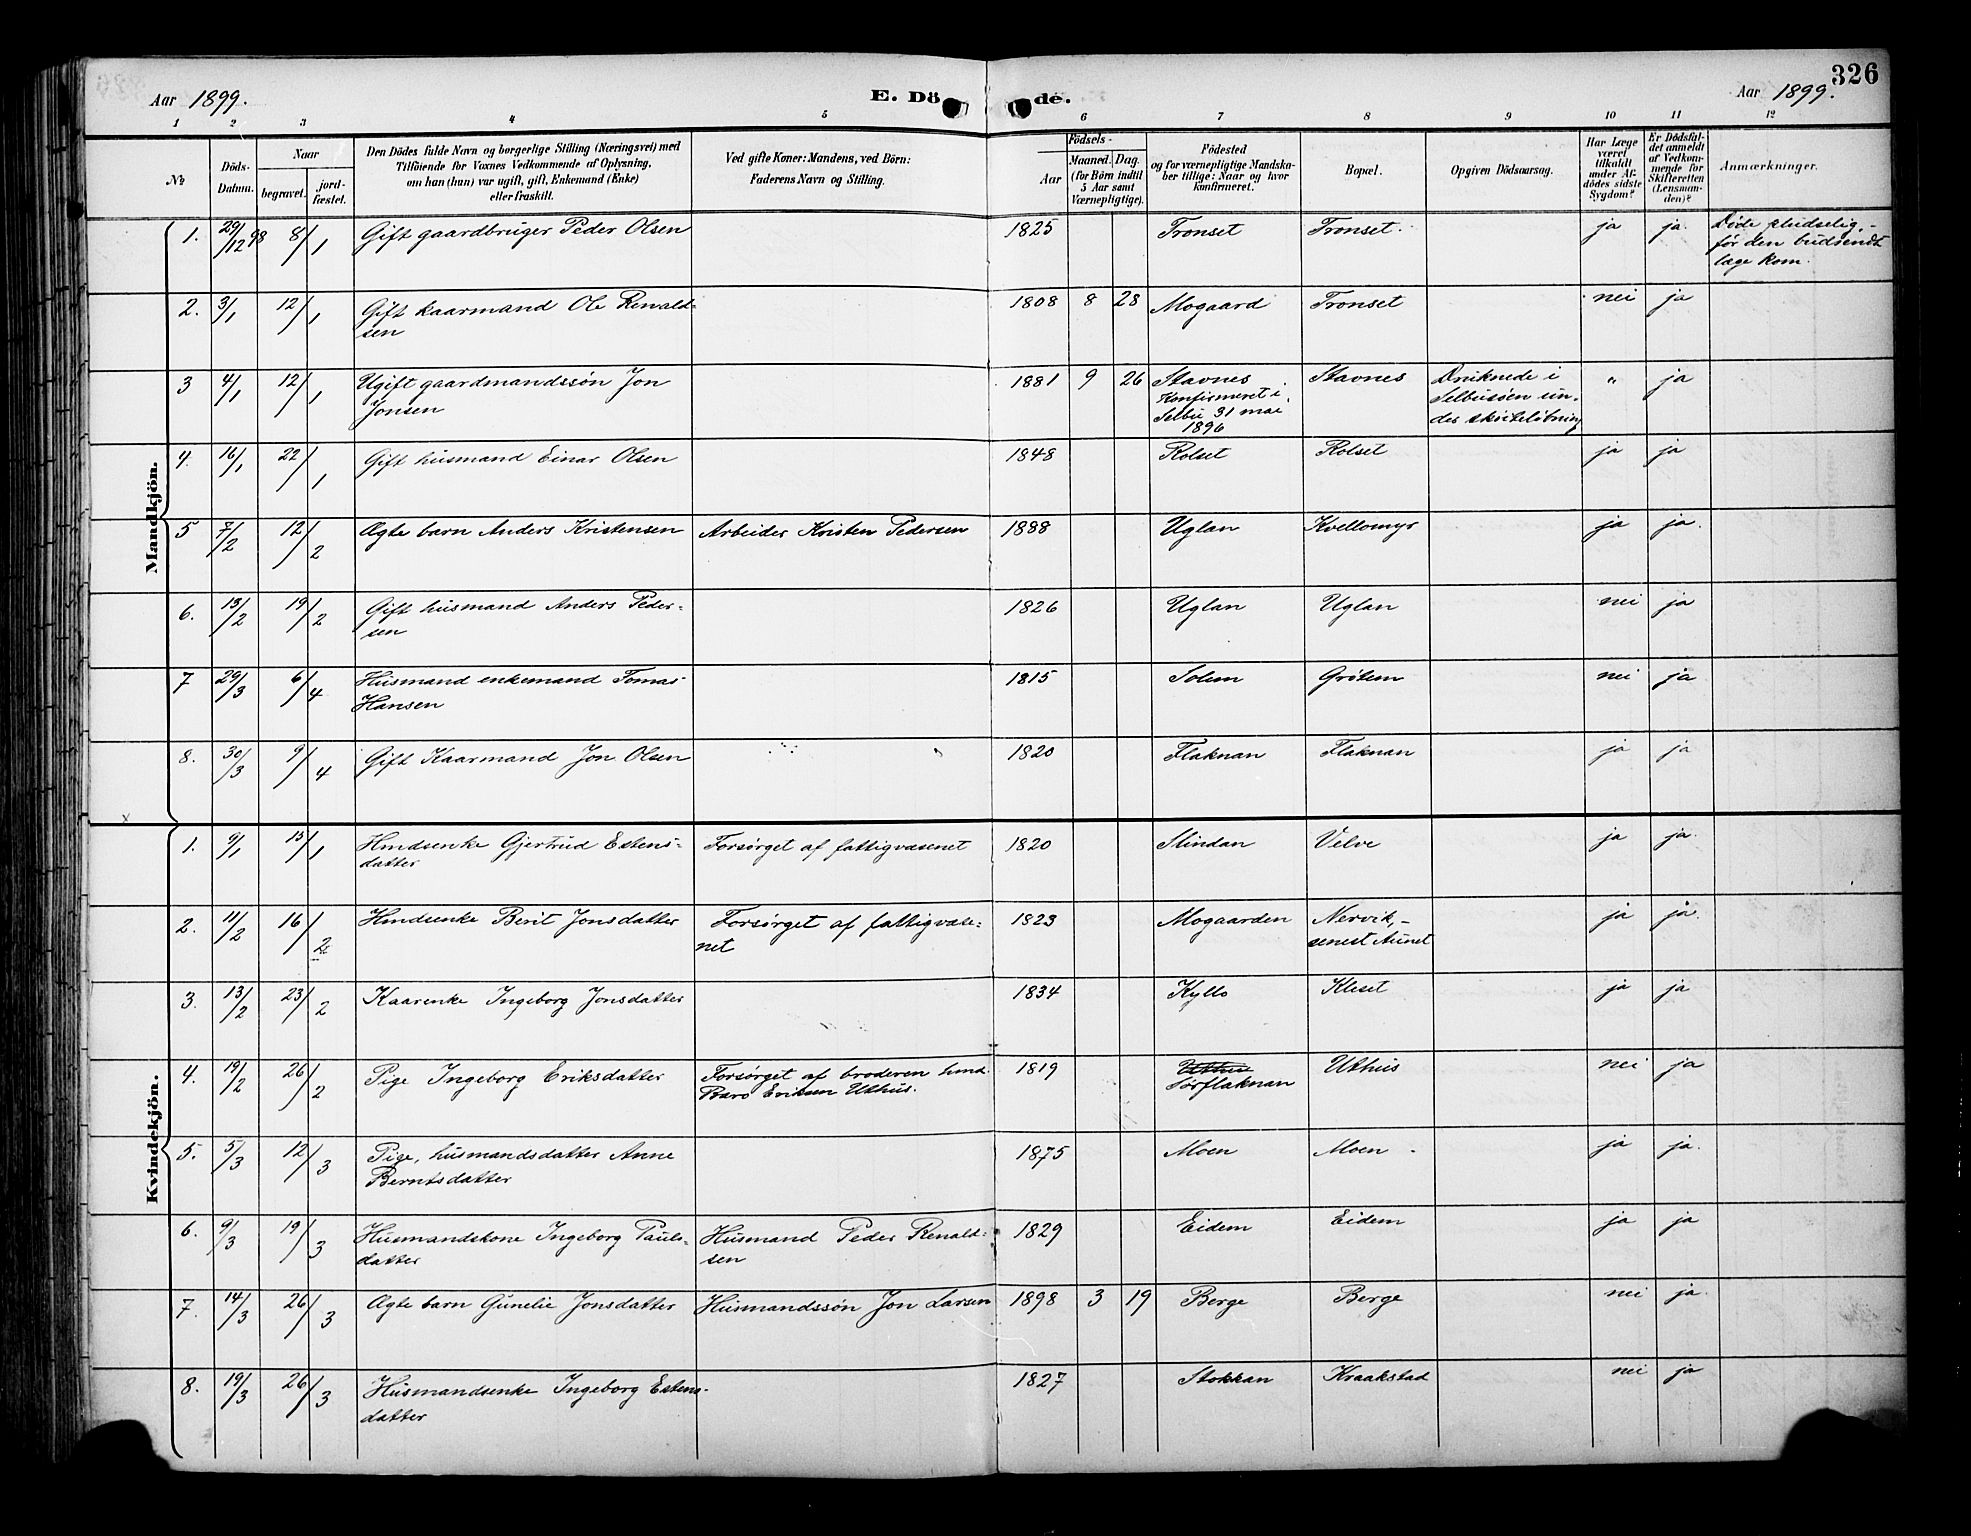 326
Aar 1899. E. Döde. Aar 1899.
1 2 3 4 5 6 7 8 9 10 11 12
No
Döds-Datum.
Naar
begravet.
jord-fæstet.
Den Dödes fulde Navn og borgerlige Stilling (Næringsvei) med
Tilföiende for Voxnes Vedkommende af Oplysning,
om han (hun) var ugift, gift, Enkemand (Enke)
eller fraskilt.
Ved gifte Koner: Mandens, ved Börn:
Faderens Navn og Stilling.
Födsels-
Aar
Maaned. Dag.
(for Börn indtil
5 Aar samt
Værnepligtige).
Födested
og for værnepligtige Mandska-
ber tillige: Naar og hvor
konfirmeret.
Bopæl.
Opgiven Dödsaarsag.
Har Læge
været
tilkaldt
under Af-
dödes sidste
Sygdom?
Er Dödsfal-
det anmeldt
af Vedkom-
mende for
Skifteretten
(Lensman-
den)?
Anmærkninger.
Mandkjön.
1. 29/12 98 8/1 Gift gaardbruger Peder Olsen 1825 Tronset Tronset. ja ja. Döde pludselig,-
för den budsendt
læge kom.
2. 3/1 12/1 Gift kaarmand Ole Renald-
sen 1808 8 28 Mogaard Tronset nei ja
3 4/1 12/1 Ugift gaardmandssön Jon
Jonsen 1881 9 26 Stavnes
Konfirmeret i
Selbu 31 mai
1896 Stavnes Druknede i
Selbusöen un-
der sköitelöbning " ja
4. 16/1 22/1 Gift husmand Einar Olsen 1848 Rolset Rolset ja ja
5 7/2 12/2 Ægte barn Anders Kristensen Arbeider Kristen Pedersen 1888 Uglan Kvellomyr ja ja.
6. 13/2 19/2 Gift husmand Anders Peder-
sen 1826 Uglan Uglan nei ja
7 29/3 6/4 Husmand enkemand Tomas
Hansen 1815 Solem Grötem nei ja
8. 30/3 9/4 Gift Kaarmand Jon Olsen 1820 Flaknan Flaknan ja ja
Kvindekjön.
1. 9/1 15/1 Hmdsenke Gjertrud Estens-
datter Forsörget af fattigvæsenet 1820 Slindan Velve ja ja.
2. 11/2 16/2 Hmdsenke Berit Jonsdatter Forsörget af fattigvæse-
net 1823 Mogaarden Nervik,-
senest Aunet ja ja.
3. 13/2 23/2 Kaarenke Ingeborg Jonsdatter 1834 Kyllo Kleset ja ja
4. 19/2 26/2 Pige Ingeborg Eriksdatter Forsörget af broderen hmd.
Baro Eriksen Uthus. 1819 Uthus
Sörflaknan Uthus nei ja
5. 5/3 12/3 Pige, husmandsdatter Anne
Berntsdatter 1875 Moen Moen ja ja.
6. 9/3 19/3 Husmandskone Ingeborg Pauls-
datter Husmand Peder Renald-
sen 1829 Eidem Eidem ja ja
7. 14/3 26/3 Ægte barn Gunelie Jonsdatter Husmandssön Jon Larsen 1898 3 19 Berge Berge nei ja.
8. 19/3 26/3 Husmandsenke Ingeborg Estens-
datter 1827 Stokkan Kraakstad nei ja